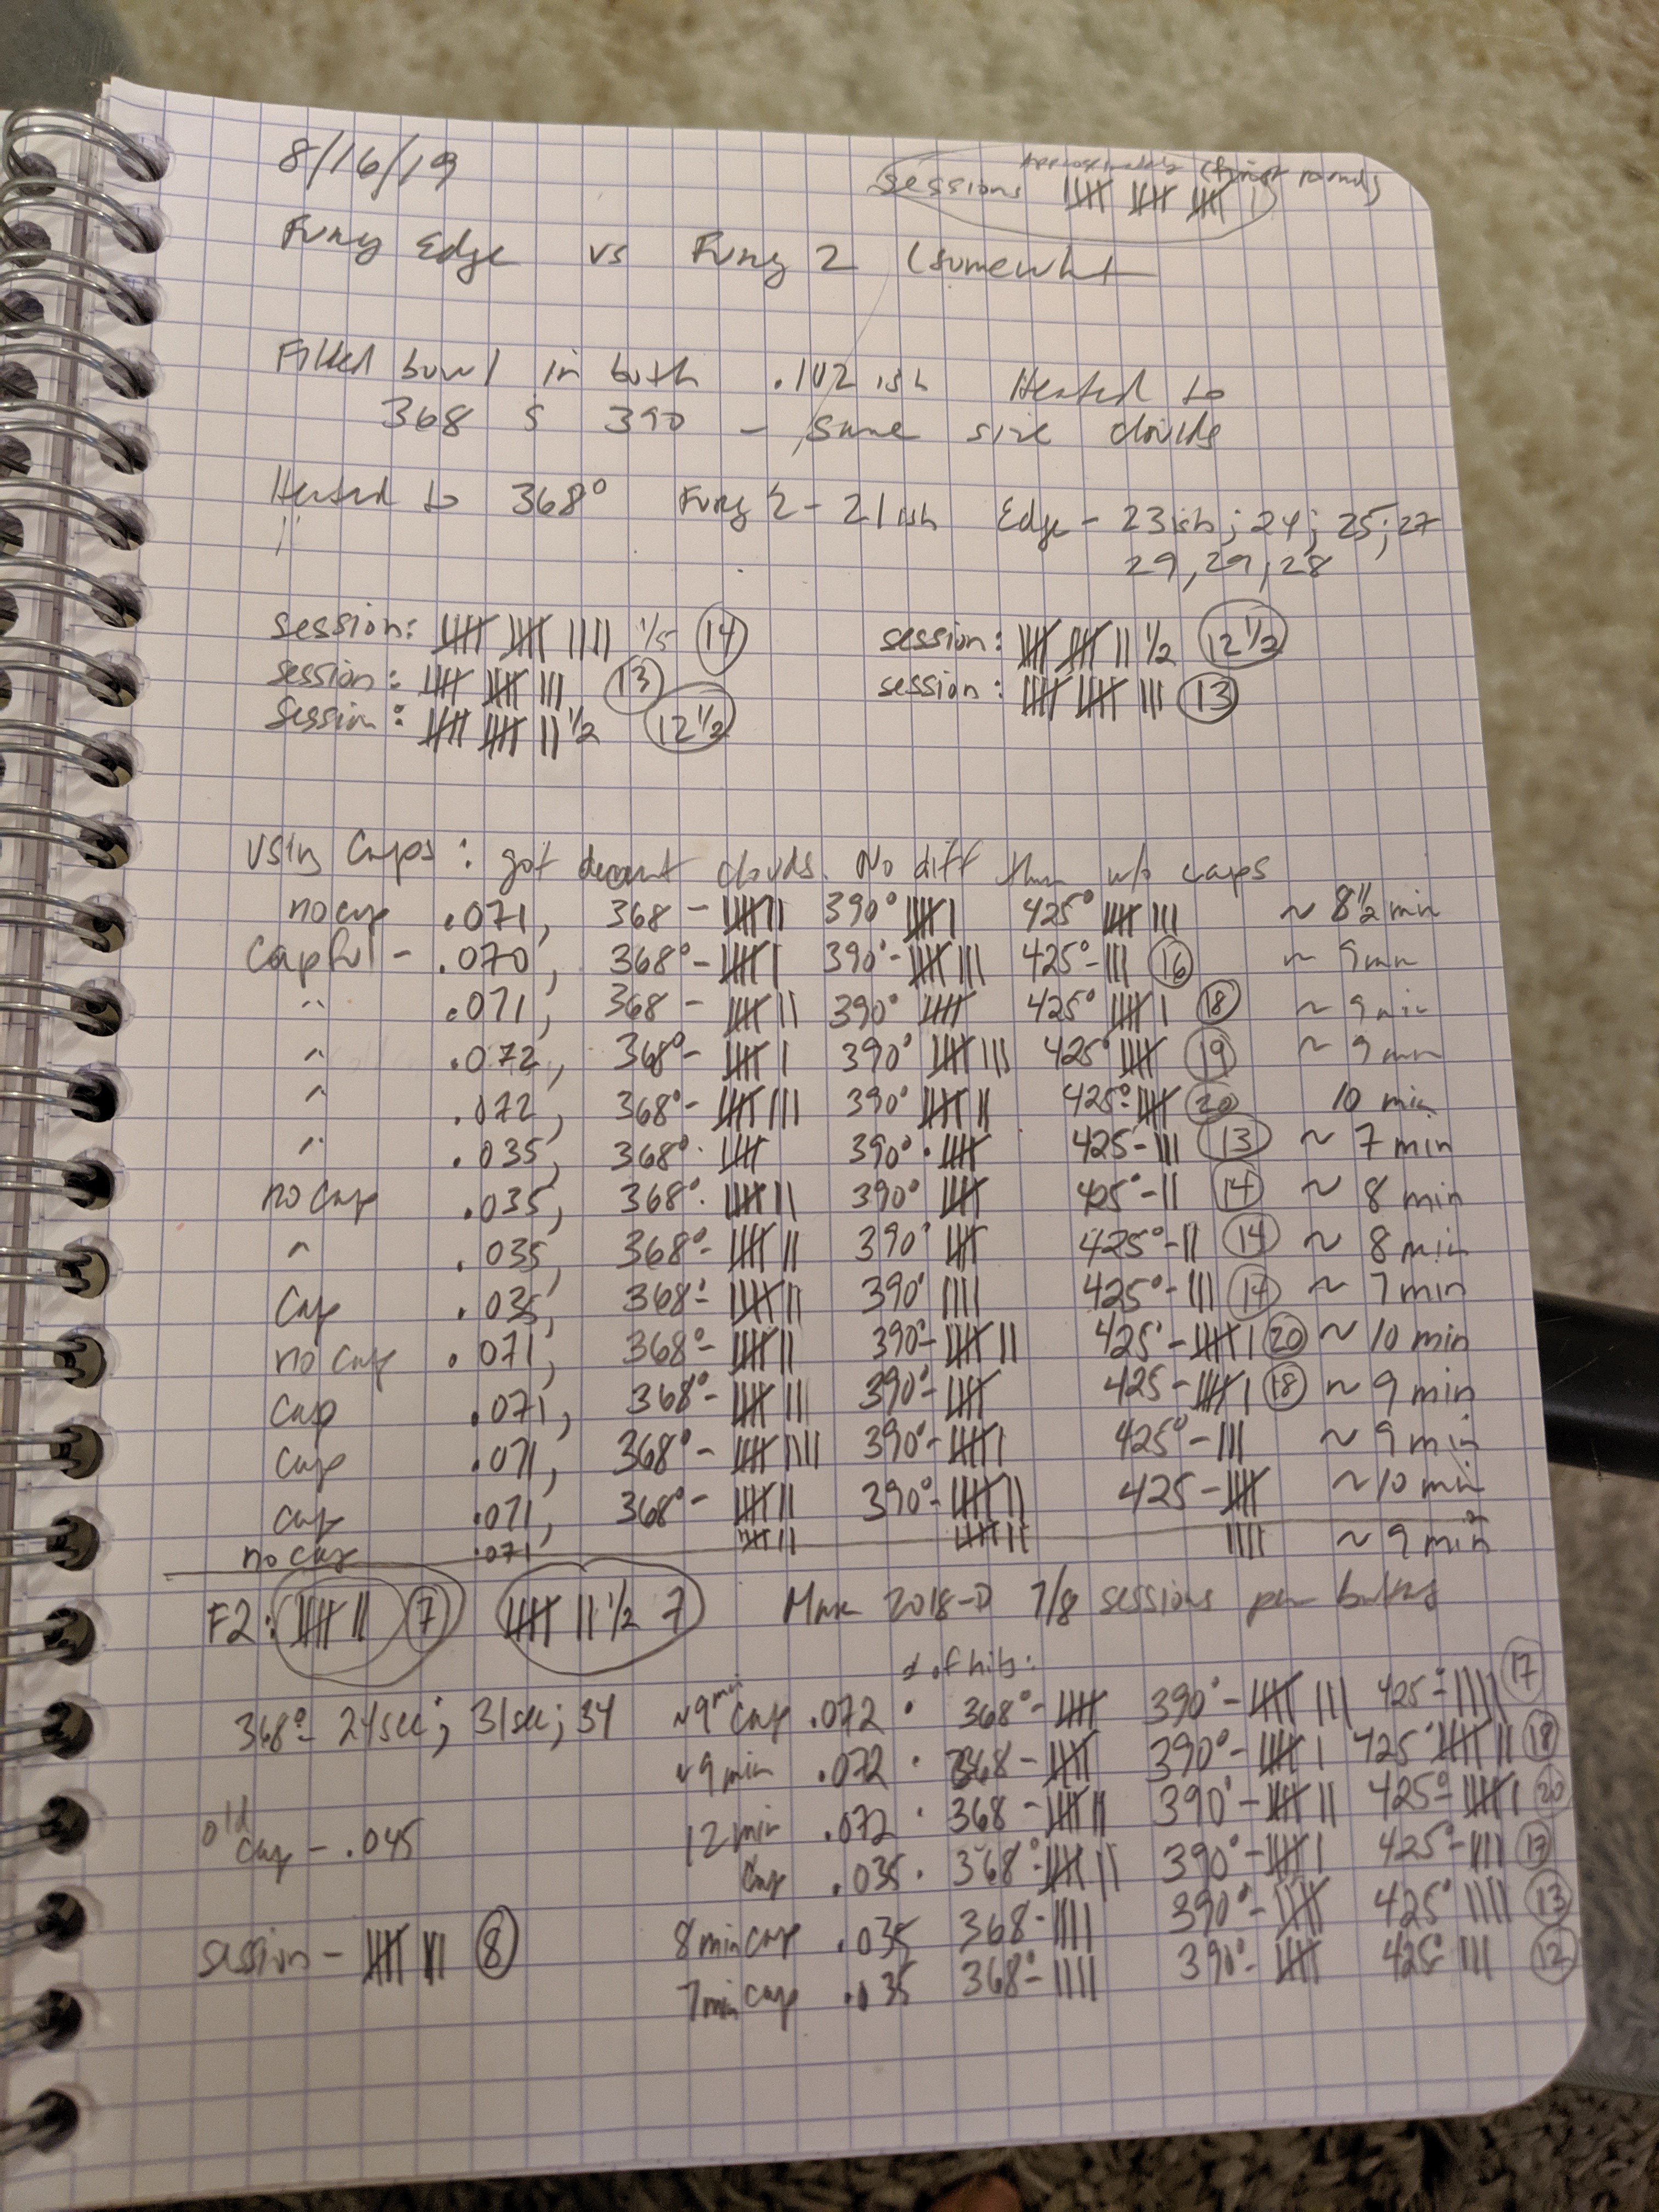 8/16/19
Approximately (first round)
sessions 卌 卌 卌 |
Fury Edge vs Fury 2 (somewht
Filled bowl in both .102 ish Heated to
368 & 390 - same size clouds
Heated to 368° Fury 2 - 21ish Edge - 23ish; 24; 25; 27
" 29, 29, 28
session: 卌 卌 |||| 1/5 14 session: 卌 卌 || 1/2 12 1/2
session: 卌 卌 ||| 13 session: 卌 卌 ||| 13
session: 卌 卌 || 1/2 12 1/2
Using Caps: got decent clouds. No diff than w/o caps
no cap .071, 368 - 卌 || 390° 卌 | 425° 卌 ||| ~ 8 1/2 min
Capful - .070, 368° - 卌 | 390° - 卌 ||| 425° - ||| 16 ~ 9 min
" .071, 368 - 卌 || 390° 卌 425° 卌 | 18 ~ 9 min
" .072, 368° - 卌 | 390° 卌 ||| 425° 卌 19 ~ 9 min
" .072, 368° - 卌 ||| 390° 卌 || 425° - 卌 20 10 min
" .035, 368° - 卌 390° - 卌 425 - ||| 13 ~ 7 min
no cap .035, 368° - 卌 || 390° 卌 425° - || 14 ~ 8 min
" .035, 368° - 卌 || 390° 卌 425° - || 14 ~ 8 min
Cap .035, 368° - 卌 || 390° |||| 425° - ||| 14 ~ 7 min
no cap .071, 368° - 卌 || 390° - 卌 || 425° - 卌 | 20 ~ 10 min
cap .071, 368° - 卌 || 390° - 卌 425 - 卌 | 18 ~ 9 min
cap .071, 368° - 卌 |||| 390° - 卌 | 425° - ||| ~ 9 min
cap .071, 368° - 卌 || 390° - 卌 || 425 - 卌 ~ 10 min
no cap .071 卌 || 卌 || |||| ~ 9 min
F2: 卌 || 7 卌 || 1/2 7 2018-D 7/8 sessions per
# of hits:
368° - 24sec; 31sec; 34 ~9 min cap .072 • 368° - 卌 390° - 卌 ||| 425° - |||| 17
~9 min .072 • 368 - 卌 390° - 卌 | 425° 卌 || 18
old cap - .045 12 min .072 • 368 - 卌 || 390° - 卌 || 425° - 卌 | 20
cap .035 • 368° - 卌 || 390° - 卌 | 425° - ||||
session - 卌 ||| 8 8 min cap .035 368 - |||| 390° - 卌 425° |||| 13
7 min cap .035 368° - |||| 390° - 卌 425° - ||| 12